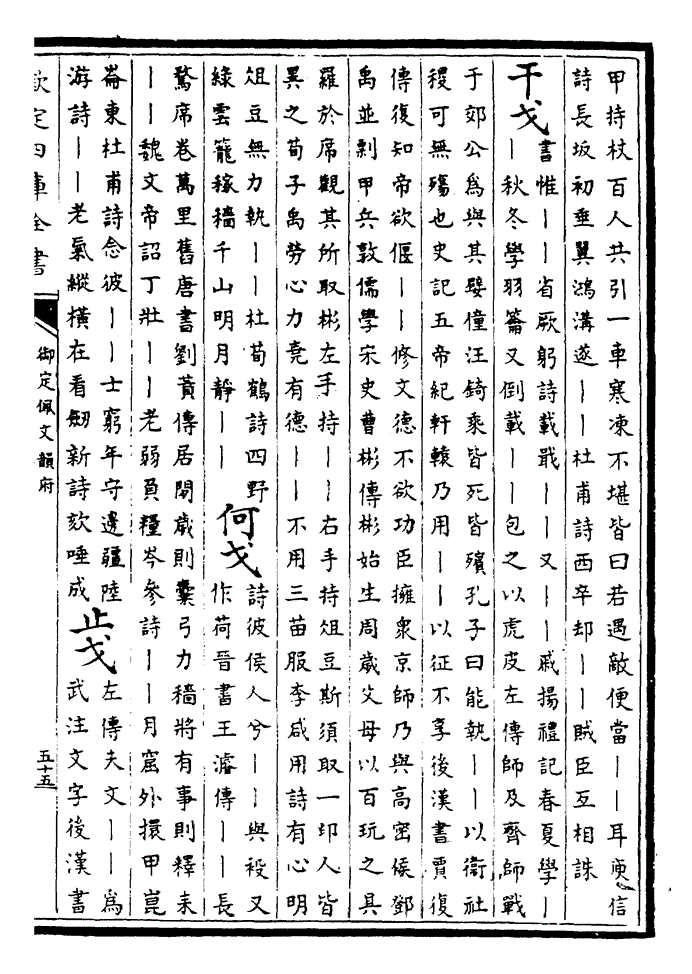 甲持杖百人共引一車寒凍不堪皆曰若遇敵便當丨丨耳庾信
詩長坂初垂翼鴻溝遂丨丨杜甫詩西卒却丨丨賊臣互相誅
干戈
書惟丨丨省厥躬詩載戢丨丨又丨丨戚揚禮記春夏學丨
丨秋冬學羽籥又倒載丨丨包之以虎皮左傳師及齊師戰
于郊公為與其嬖僮汪錡乘皆死皆殯孔子曰能執丨丨以衛社
稷可無殤也史記五帝紀軒轅乃用丨丨以征不享後漢書賈復
傳復知帝欲偃丨丨修文德不欲功臣擁衆京師乃與高密侯鄧
禹並剽甲兵敦儒學宋史曹彬傳彬始生周歲父母以百玩之具
羅於席觀其所取彬左手持丨丨右手持俎豆斯須取一印人皆
異之荀子禹勞心力堯有德丨丨不用三苗服李咸用詩有心明
俎豆無力執丨丨杜荀鶴詩四野
綠雲籠稼穡千山明月靜丨丨
何戈
詩彼侯人兮丨丨與祋又
作荷晉書王濬傳丨丨長
騖席卷萬里舊唐書劉蕡傳居閒歲則櫜弓力穡將有事則釋耒
丨丨魏文帝詔丁壯丨丨老弱負糧岑參詩丨丨月窟外擐甲崑
崙東杜甫詩念彼丨丨士窮年守邊疆陸
游詩丨丨老氣縱橫在看劒新詩欬唾成
止戈
左傳夫文丨丨為
武注文字後漢書
欽定四庫全書
御定佩文韻府
五十五